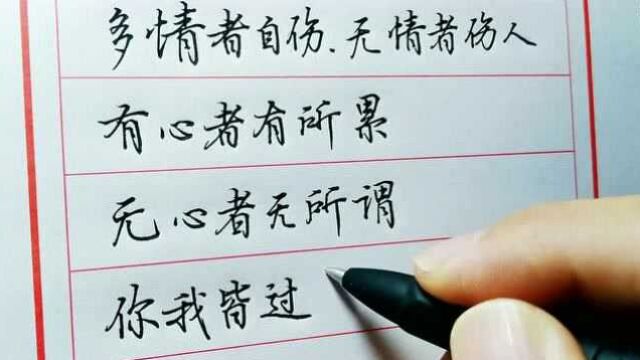 多情者自伤.无情者伤人
有心者有所累
无心者无所谓
你我皆过